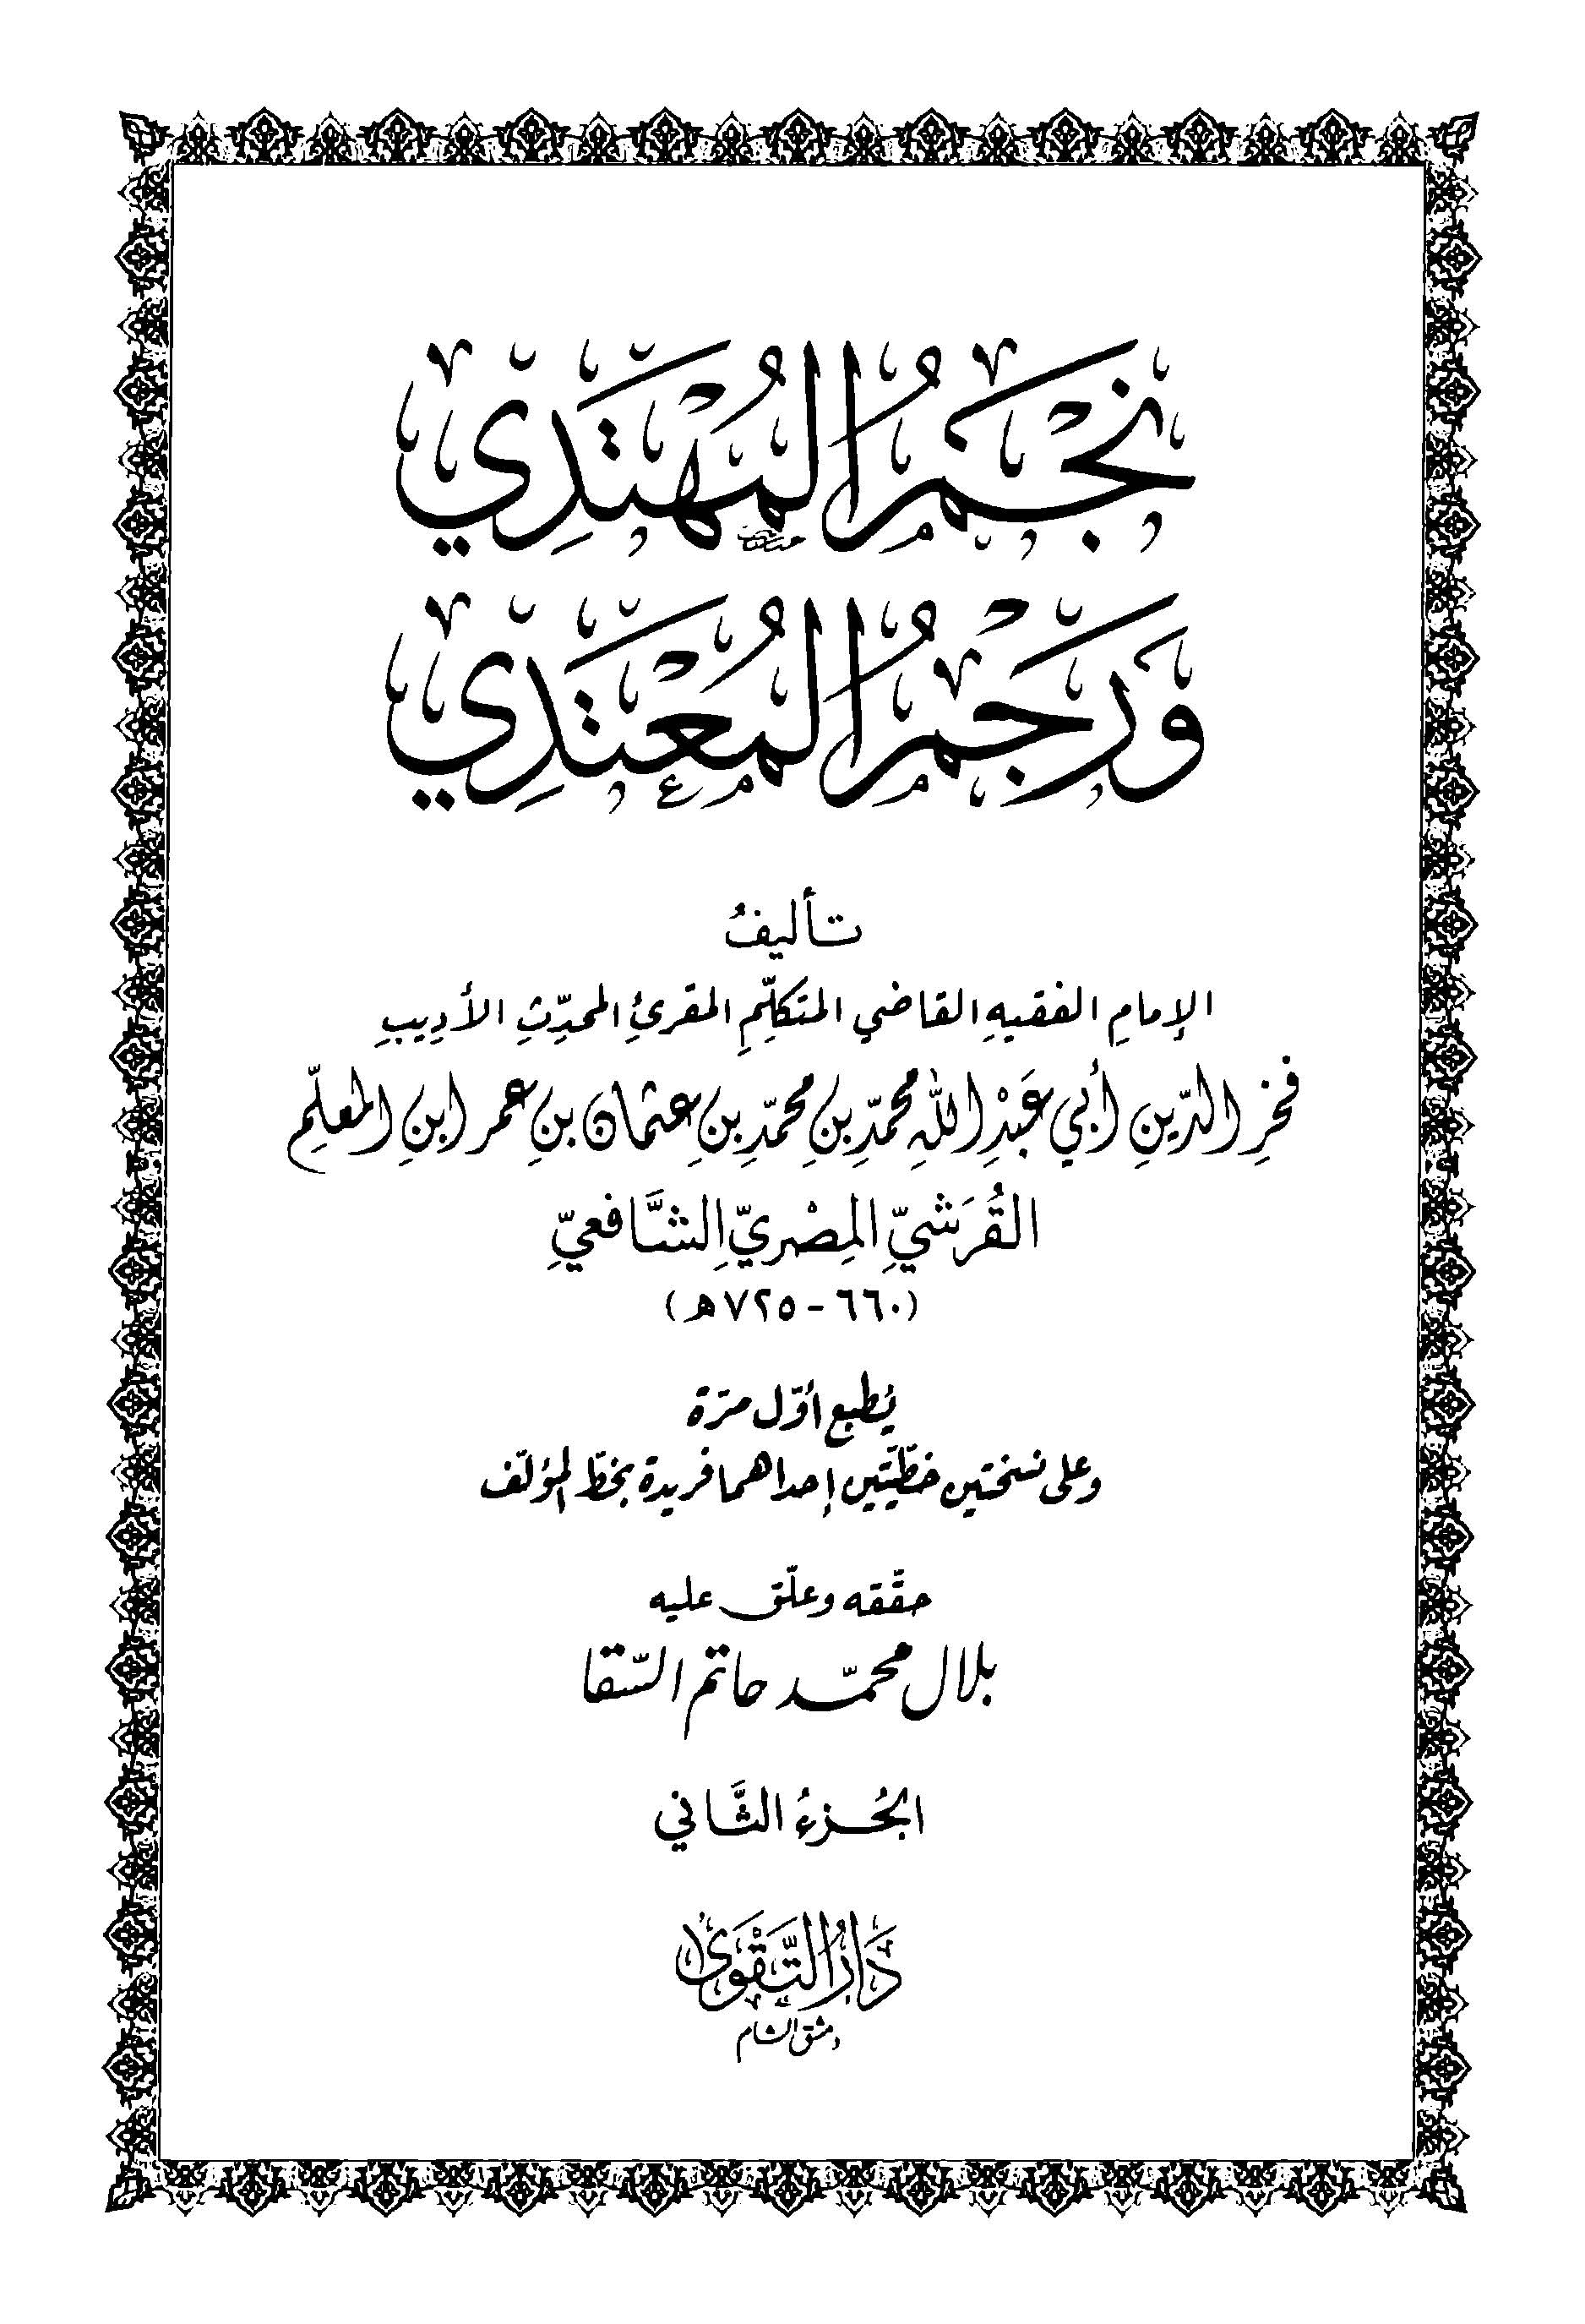 نَجْمُ الْمُهْتَدِي
وَرَجْمُ الْمُعْتَدِي
تأليفُ
الإمامِ الفقيهِ القاضي المتكلِّمِ المقرئِ المحدِّثِ الأديبِ
فخرِ الدّينِ أبي عَبْدِ اللهِ محمّدِ بنِ محمّدِ بنِ عثمان بنِ عمر ابنِ المعلِّمِ
القُرَشيِّ المِصْريِّ الشَّافعيِّ
(٦٦٠ - ٧٢٥ هـ)
يُطبع أوّل مرّة
وعلى نسختين خطّيّتين إحداهما فريدة بخطّ المؤلّف
حقَّقه وعلّق عليه
بلال محمّد حاتم السّقا
الجُزءُ الثَّاني
دَارُ التَّقْوَى
دمشق الشام